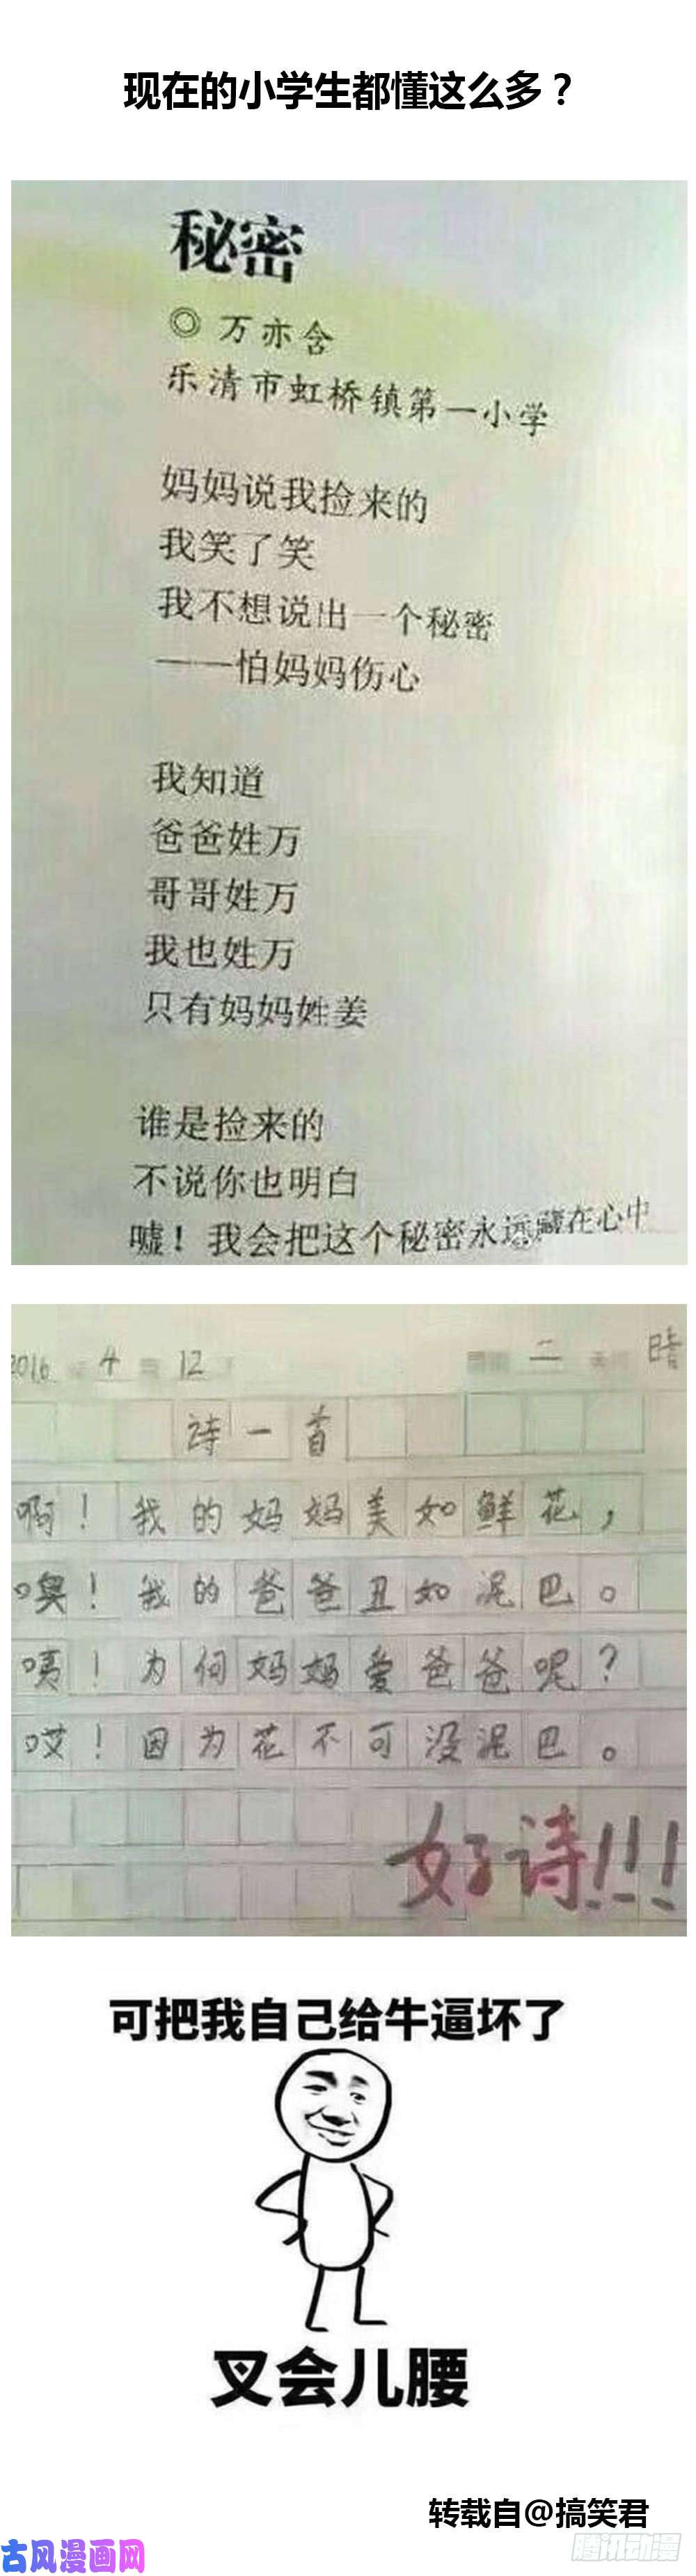 现在的小学生都懂这么多？
秘密
◎ 万亦含
乐清市虹桥镇第一小学
妈妈说我捡来的
我笑了笑
我不想说出一个秘密
——怕妈妈伤心
我知道
爸爸姓万
哥哥姓万
我也姓万
只有妈妈姓姜
谁是捡来的
不说你也明白
嘘！我会把这个秘密永远藏在心中
2016 4 12 二 晴
诗一首
啊！我的妈妈美如鲜花，
噢！我的爸爸丑如泥巴。
咦！为何妈妈爱爸爸呢？
哎！因为花不可没泥巴。
好诗!!!
可把我自己给牛逼坏了
叉会儿腰
转载自@搞笑君
古风漫画网
腾讯动漫